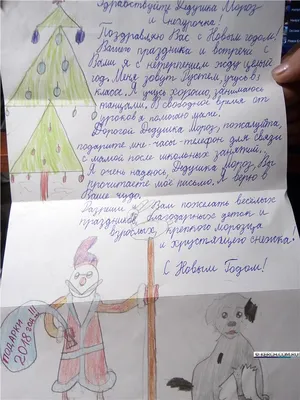 Здравствуйте Дедушка Мороз
и Снегурочка!
Поздравляю Вас с Новым годом!
Вашего праздника и встречи с
Вами я с нетерпением жду целый
год. Меня зовут Рустем, учусь в 1
классе. Я учусь хорошо, занимаюсь
танцами. В свободное время от
уроков я помогаю маме.
Дорогой Дедушка Мороз, пожалуйста,
подарите мне часы-телефон для связи
с мамой после школьных занятий.
Я очень надеюсь, Дедушка Мороз, Вы
прочитаете моё письмо. Я верю в
Ваше чудо.
Разреши Вам пожелать весёлых
праздников, благодарных деток и
взрослых, крепкого морозца
и хрустящего снежка.
С Новым Годом!
ПОДАРКИ
2018 год!!!
© KERCH.COM.RU